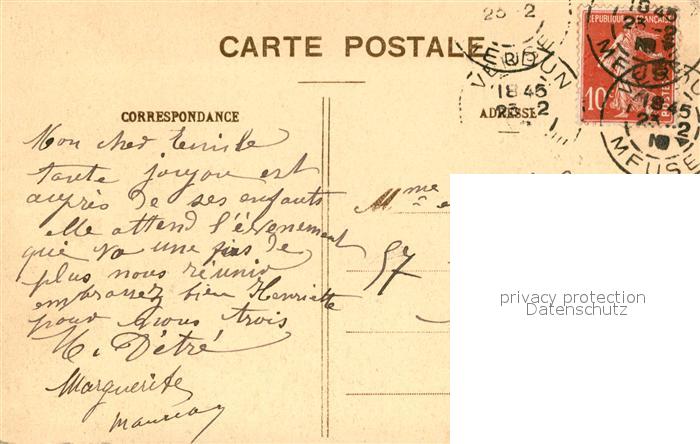 CARTE POSTALE
CORRESPONDANCE
ADRESSE
RÉPUBLIQUE FRANÇAISE
10 POSTES
VERDUN
18 45
23 - 2
MEUSE
Mon cher Emile
tante joujou est
auprès de ses enfants
elle attend l'évenement
que va une fois de
plus nous réunir
embrassez bien Henriette
pour nous trois
H. Détré
Marguerite
Mme e
57
privacy protection
Datenschutz